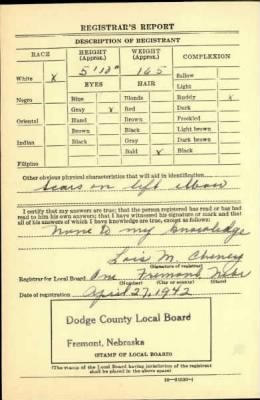 REGISTRAR'S REPORT
DESCRIPTION OF REGISTRANT
RACE HEIGHT (Approx.) WEIGHT (Approx.) COMPLEXION
5' 10" 165 Sallow
White X EYES HAIR Light
Negro Blue Blonde Ruddy X
Gray X Red Dark
Oriental Hazel Brown Freckled
Brown Black Light brown
Indian Black Gray Dark brown
Bald X Black
Filipino
Other obvious physical characteristics that will aid in identification
Scars on left elbow
I certify that my answers are true; that the person registered has read or has had
read to him his own answers; that I have witnessed his signature or mark and that
all of his answers of which I have knowledge are true, except as follows:
None to my knowledge
Lois M. Cheney
(Signature of registrar)
Registrar for Local Board One Fremont Nebr
(Number) (City or county) (State)
Date of registration April 27, 1942
Dodge County Local Board
Fremont, Nebraska
(STAMP OF LOCAL BOARD)
(The stamp of the Local Board having jurisdiction of the registrant
shall be placed in the above space)